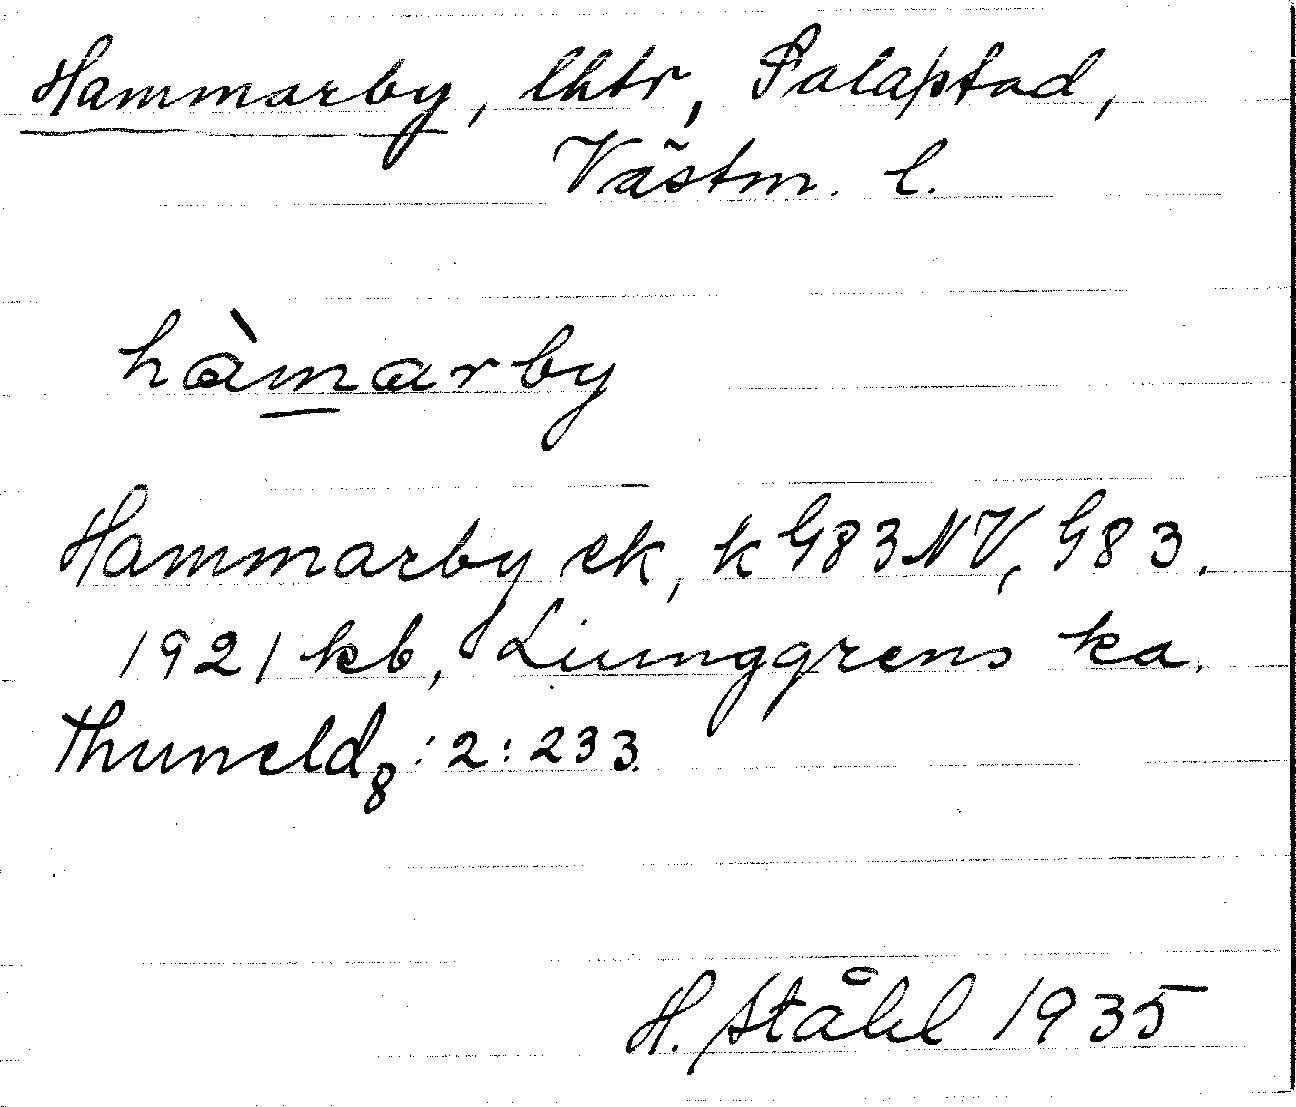 Hammarby, lhtr, Salapstad,
Västm. l.
hàmarby
Hammarby ek, k G83NV, G83.
1921 kb, Ljunggrens ka.
Thuneld₈:2:233.
H. Ståhl 1935